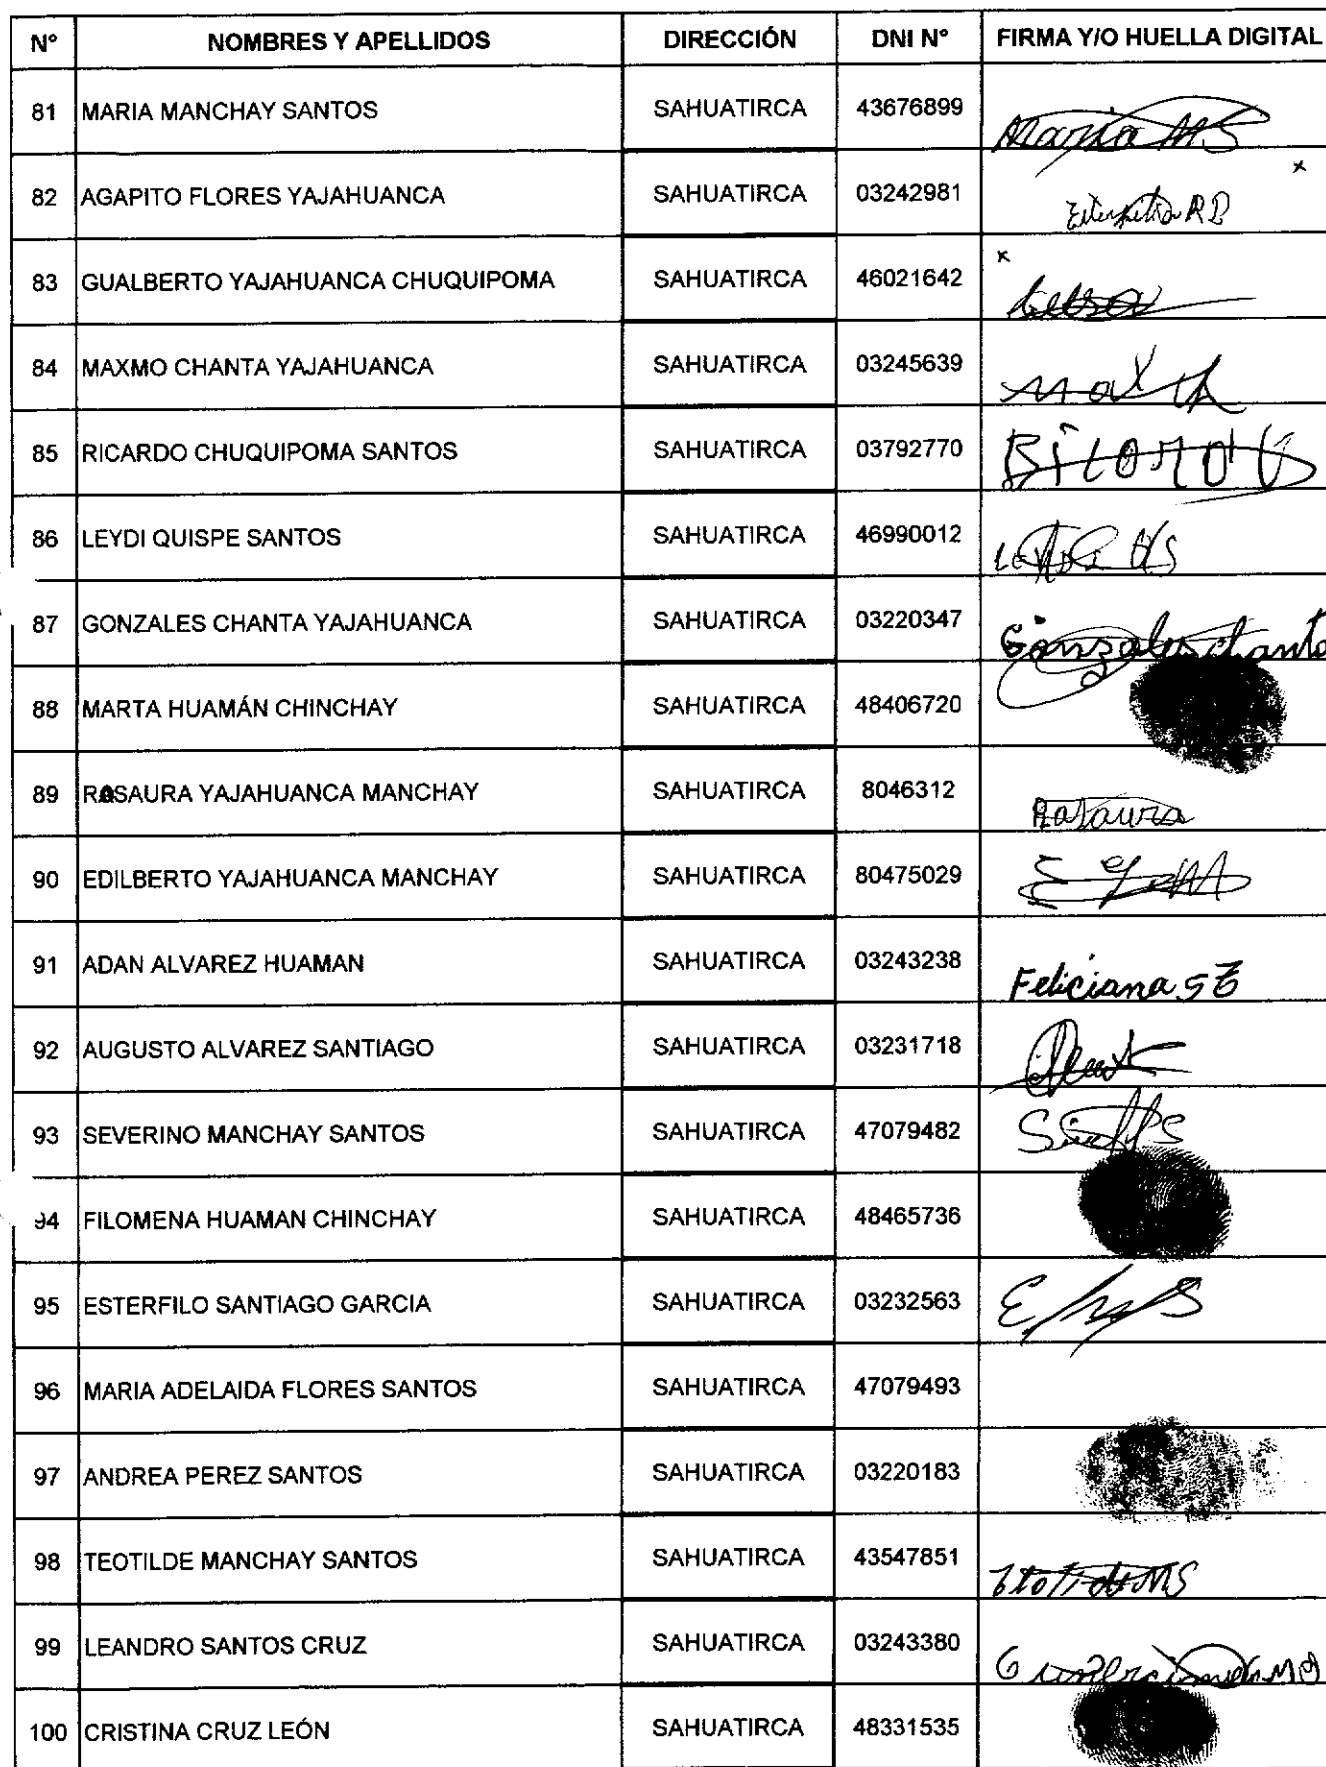 N° NOMBRES Y APELLIDOS DIRECCIÓN DNI N° FIRMA Y/O HUELLA DIGITAL
81 MARIA MANCHAY SANTOS SAHUATIRCA 43676899 Maria MS
82 AGAPITO FLORES YAJAHUANCA SAHUATIRCA 03242981 x
83 GUALBERTO YAJAHUANCA CHUQUIPOMA SAHUATIRCA 46021642 x
84 MAXMO CHANTA YAJAHUANCA SAHUATIRCA 03245639
85 RICARDO CHUQUIPOMA SANTOS SAHUATIRCA 03792770
86 LEYDI QUISPE SANTOS SAHUATIRCA 46990012
87 GONZALES CHANTA YAJAHUANCA SAHUATIRCA 03220347 Gonzales chanta
88 MARTA HUAMÁN CHINCHAY SAHUATIRCA 48406720
89 ROSAURA YAJAHUANCA MANCHAY SAHUATIRCA 8046312
90 EDILBERTO YAJAHUANCA MANCHAY SAHUATIRCA 80475029
91 ADAN ALVAREZ HUAMAN SAHUATIRCA 03243238 Feliciana
92 AUGUSTO ALVAREZ SANTIAGO SAHUATIRCA 03231718
93 SEVERINO MANCHAY SANTOS SAHUATIRCA 47079482
94 FILOMENA HUAMAN CHINCHAY SAHUATIRCA 48465736
95 ESTERFILO SANTIAGO GARCIA SAHUATIRCA 03232563
96 MARIA ADELAIDA FLORES SANTOS SAHUATIRCA 47079493
97 ANDREA PEREZ SANTOS SAHUATIRCA 03220183
98 TEOTILDE MANCHAY SANTOS SAHUATIRCA 43547851
99 LEANDRO SANTOS CRUZ SAHUATIRCA 03243380
100 CRISTINA CRUZ LEÓN SAHUATIRCA 48331535